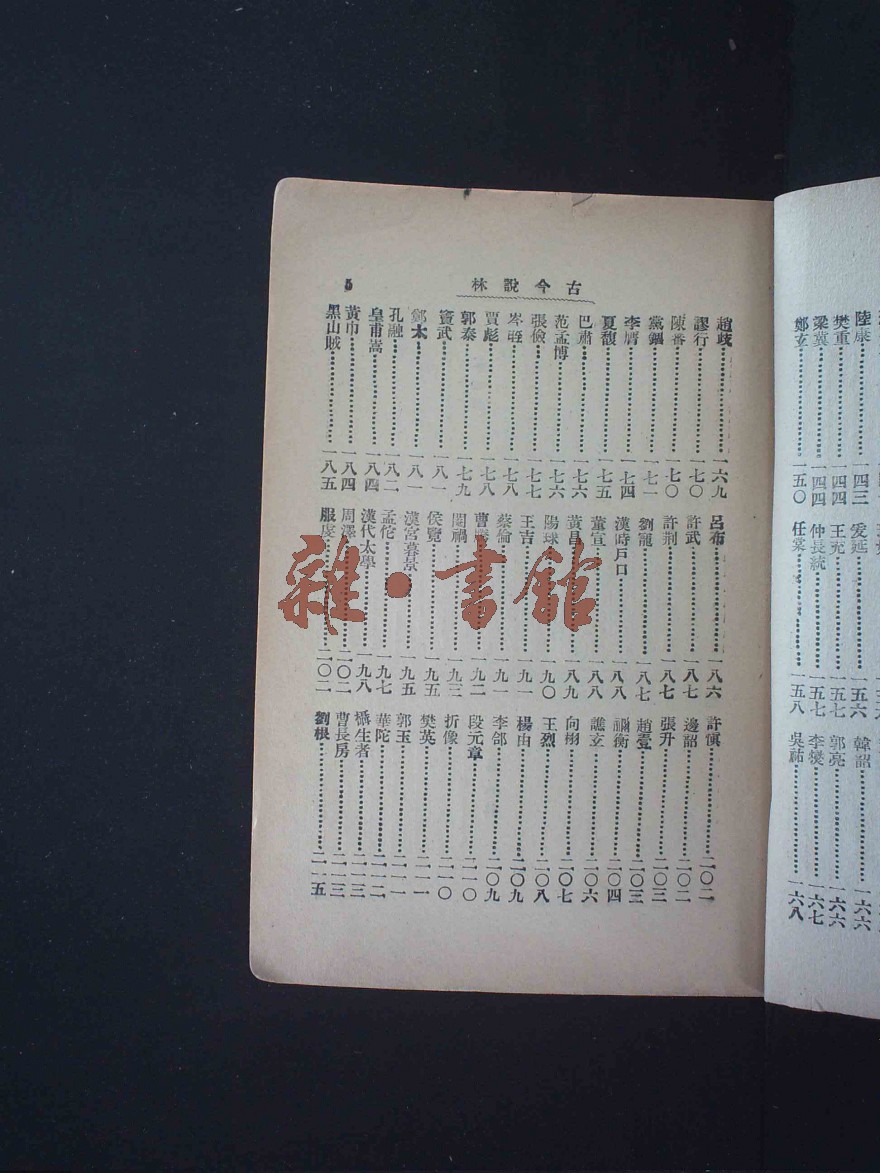 陸康……一四三
樊重……一四四
梁冀……一四四
鄭玄……一五〇
爰延……一五六
王充……一五七
仲長統……一五七
任棠……一五八
韓韶……一六六
郭亮……一六六
李燮……一六七
吳祐……一六八
古今說林
5
趙歧……一六九
謬行……一七〇
陳蕃……一七〇
黨錮……一七一
李膺……一七四
夏馥……一七五
巴肅……一七六
范孟博……一七六
張儉……一七七
岑晊……一七八
賈彪……一七八
郭泰……一七九
竇武……一八一
鄭太……一八一
孔融……一八二
皇甫嵩……一八四
黃巾……一八四
黑山賊……一八五
呂布……一八六
許武……一八七
許荆……一八七
劉寵……一八七
漢時戶口……一八八
董宣……一八八
黃昌……一八九
陽球……一九〇
王吉……一九一
蔡倫……一九一
曹騰……一九二
閹禍……一九三
侯覽……一九五
漢宮暮景……一九五
孟佗……一九七
漢代太學……一九八
周澤……二〇二
服虔……二〇二
許慎……二〇二
邊韶……二〇二
張升……二〇三
趙壹……二〇三
禰衡……二〇四
譙玄……二〇六
向栩……二〇七
王烈……二〇八
楊由……二〇九
李郃……二〇九
段元章……二一〇
折像……二一〇
樊英……二一一
郭玉……二一一
華陀……二一二
生者……二一三
曹長房……二一三
劉根……二一五
雜·書館